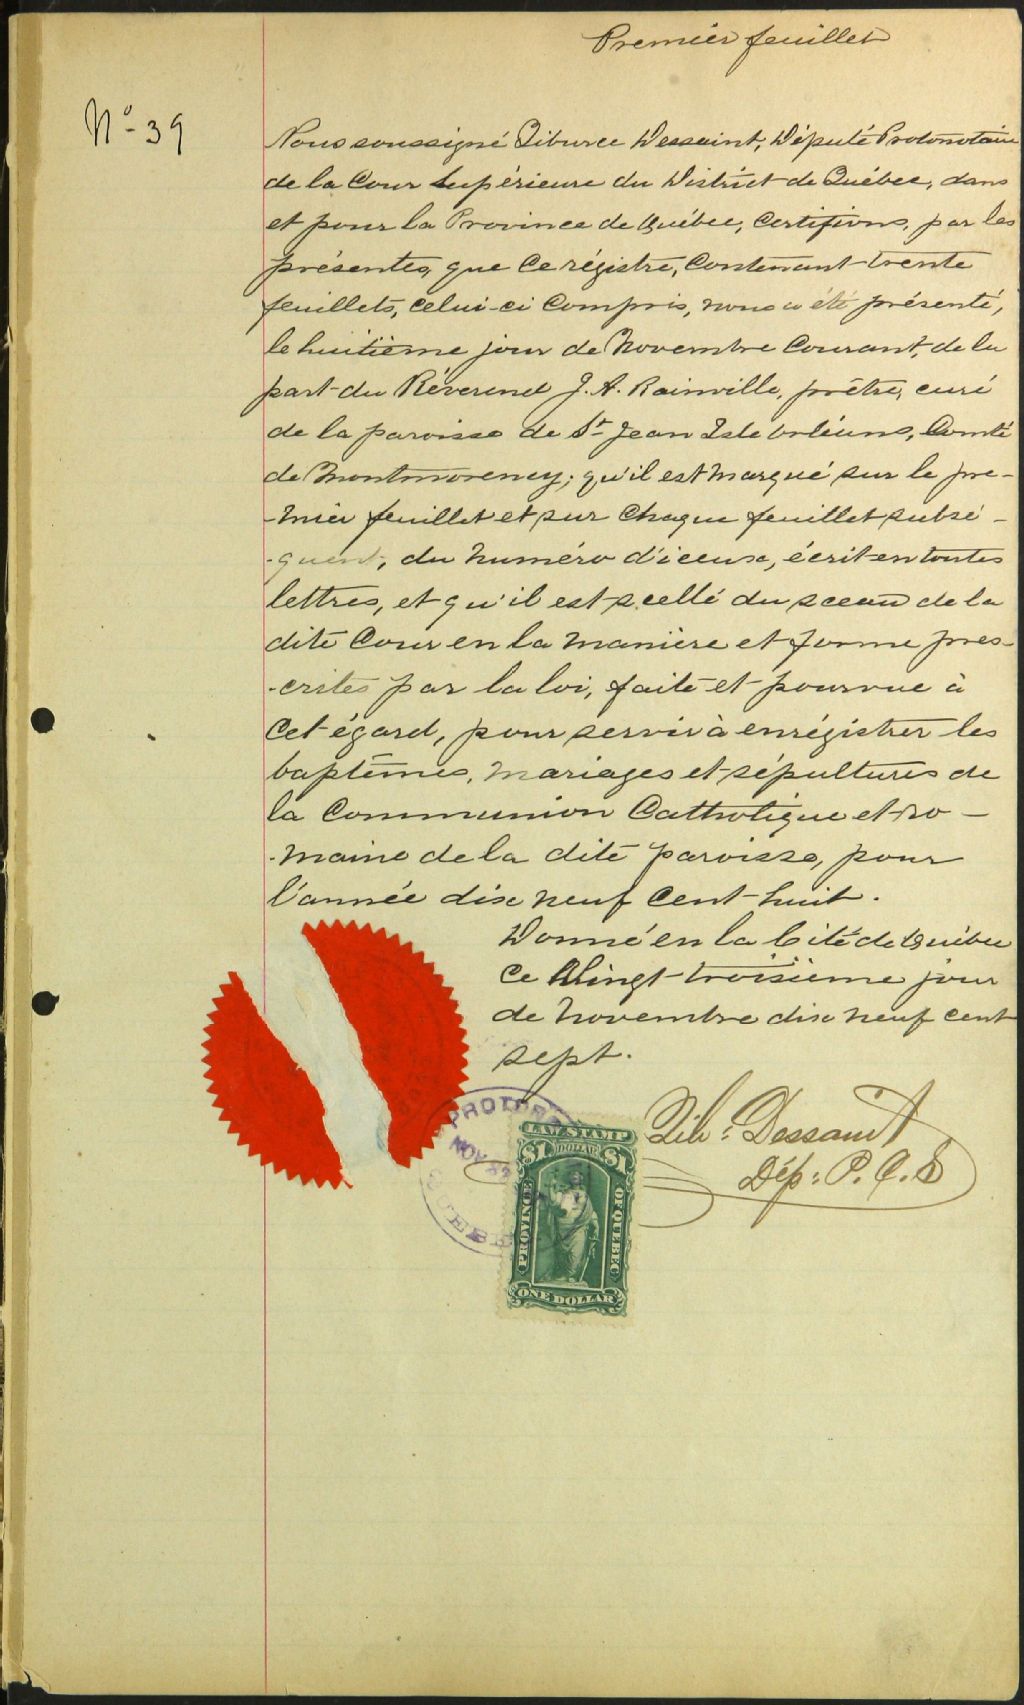 Premier feuillet
No- 39
Nous soussigné Tiburce Dessaint, Député Protonotaire
de la Cour Supérieure du District de Québec, dans
et pour la Province de Québec, Certifions, par les
présentes, que ce régistre, Contenant trente
feuillets, celui-ci Compris, nous a été présenté,
le huitième jour de Novembre Courant, de la
part du Réverend J. A. Rainville, prêtre, curé
de la paroisse de St Jean Isle Orléans, Comté
de Montmorency; qu'il est marqué sur le pre-
-mier feuillet et sur chaque feuillet subsé-
-quent, du numéro d'iceux, écrit en toutes
lettres, et qu'il est scellé du sceau de la
dite Cour en la manière et forme pres-
-crites par la loi, faite et pourvue à
cet égard, pour servir à enrégistrer les
baptêmes, mariages et sépultures de
la Communion Catholique et ro-
-maine de la dite paroisse, pour
l'année dix neuf cent huit.
Donné en la Cité de Québec
ce Vingt-troisième jour
de Novembre dix neuf cent
sept.
Tib: Dessaint
Dép: P. C. S
NOV
LAW STAMP
$1 DOLLAR $1
PROVINCE OF QUEBEC
ONE DOLLAR